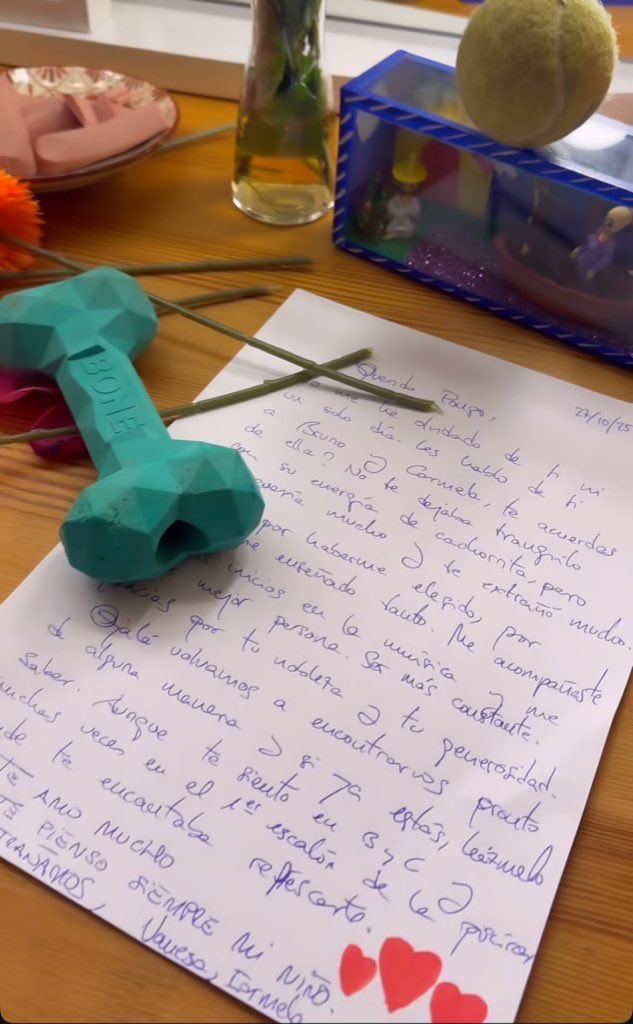 BONE
27/10/25
Querido Pongo,
me he olvidado de ti ni
un solo día. Les hablo de ti
a Bruno y Carmela, te acuerdas
de ella? No te dejaba tranquilo
con su energía de cachorrita, pero
quería mucho y te extrañó mucho.
por haberme elegido, por
enseñado tanto. Me acompañaste
inicios en la música y me
mejor persona. Ser más constante.
Gracias por tu nobleza y tu generosidad.
Ojalá volvamos a encontrarnos pronto
de alguna manera y si ya estás, házmelo
saber. Aunque te siento en B y C y
muchas veces en el 1er escalón de la piscina
donde te encantaba refrescarte.
TE AMO MUCHO
TE PIENSO SIEMPRE MI NIÑO.
Vanesa, Carmela